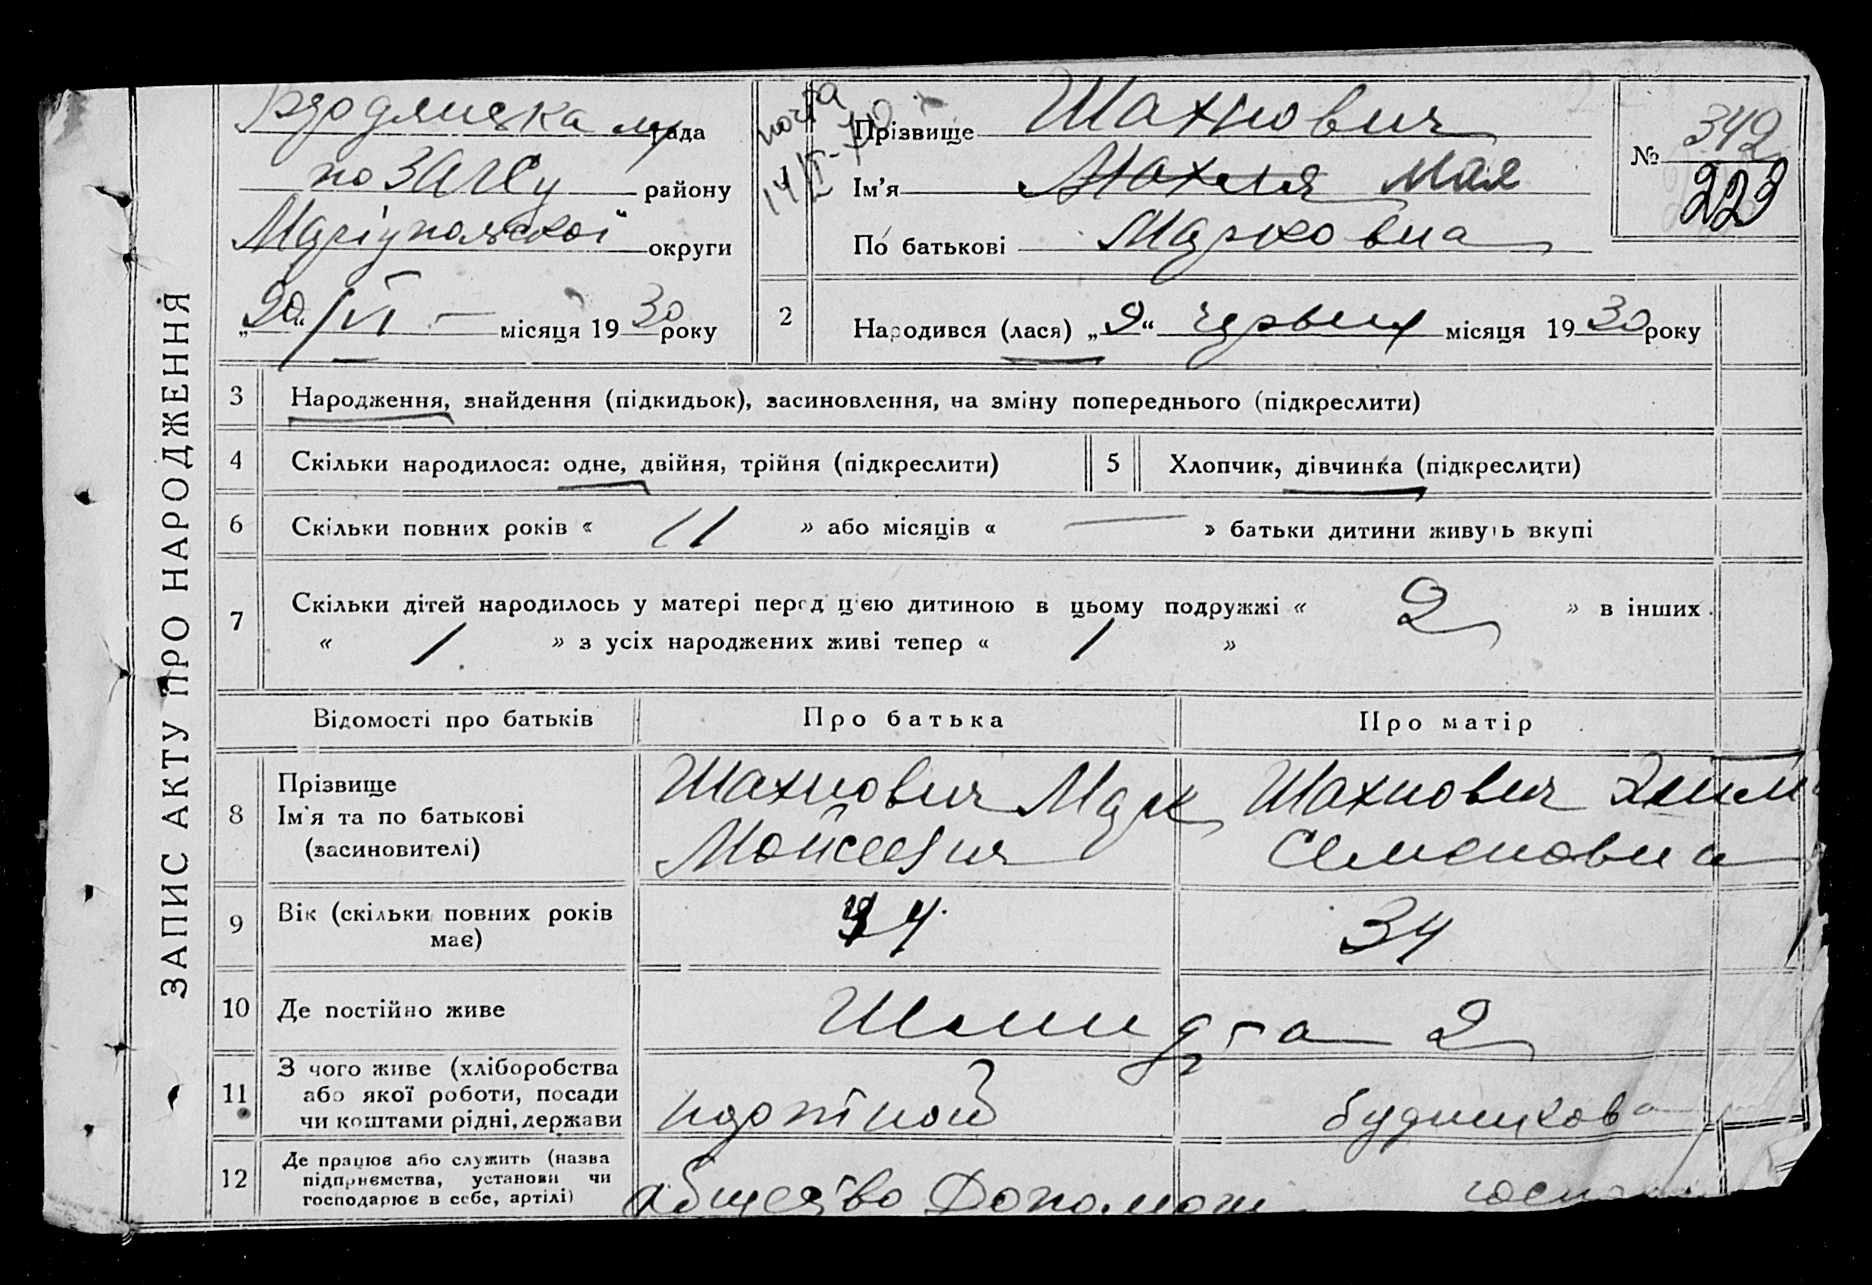 ЗАПИС АКТУ ПРО НАРОДЖЕННЯ
Бердянська м рада
по ЗАГСу району
Маріупольської округи
„20“ /VI — місяця 1930 року
почта
14/II-70
Прізвище Шахнович
Ім'я Махля Мая
По батькові Марковна
№ 342
223
2 Народився (лася) „9“ червня місяця 1930 року
3 Народження, знайдення (підкидьок), засиновлення, на зміну попереднього (підкреслити)
4 Скільки народилося: одне, двійня, трійня (підкреслити)
5 Хлопчик, дівчинка (підкреслити)
6 Скільки повних років « 11 » або місяців « — » батьки дитини живуть вкупі
7 Скільки дітей народилось у матері перед цією дитиною в цьому подружжі « 2 » в інших
« 1 » з усіх народжених живі тепер « 1 »
Відомості про батьків Про батька Про матір
8 Прізвище
Ім'я та по батькові
(засиновителі)
Шахнович Марк
Мойсеевич
Шахнович
Семеновна
9 Вік (скільки повних років
має)
44
34
10 Де постійно живе
Шмидта 2
11 З чого живе (хліборобства
або якої роботи, посади
чи коштами рідні, держави
портной
12 Де працює або служить (назва
підприємства, установи чи
господарює в себе, артілі)
общество Допомог